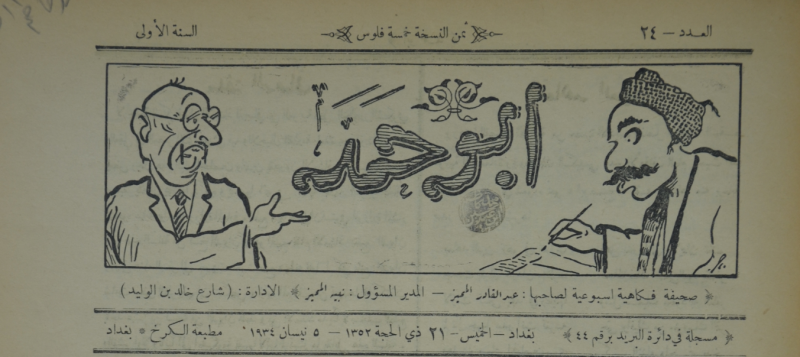 العدد — ٢٤
ثمن النسخة خمسة فلوس
السنة الأولى
أبو حمد
﴿ صحيفة فكاهية اسبوعية لصاحبها : عبدالقادر المميز — المدير المسؤول : نبيه المميز ﴾ الادارة : ( شارع خالد بن الوليد )
﴿ مسجلة في دائرة البريد برقم ٤٤ ﴾ بغداد — الخميس — ٢١ ذي الحجة ١٣٥٢ — ٥ نيسان ١٩٣٤ . مطبعة الكرخ * بغداد